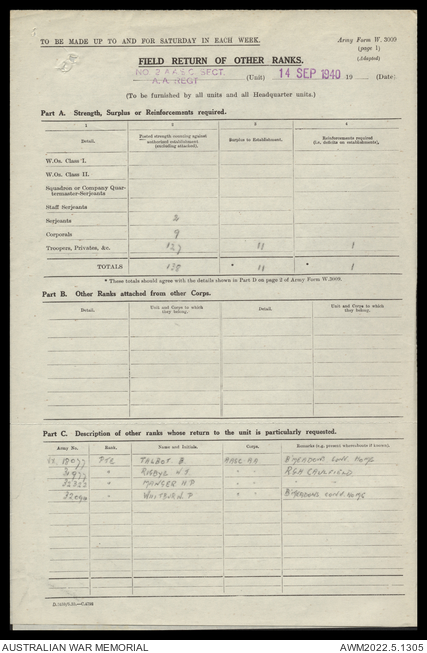 TO BE MADE UP TO AND FOR SATURDAY IN EACH WEEK.
Army Form W. 3009
(page 1)
(Adapted)
FIELD RETURN OF OTHER RANKS.
NO. 2 A.A.S.C. SECT.
A.A. REGT
(Unit) 14 SEP 1940 19 (Date)
(To be furnished by all units and all Headquarter units.)
Part A. Strength, Surplus or Reinforcements required.
1 2 3 4
Detail. Posted strength counting against authorized establishment (excluding attached). Surplus to Establishment. Reinforcements required (i.e. deficits on establishments).
W.Os. Class I.
W.Os. Class II.
Squadron or Company Quar-
termaster-Serjeants
Staff Serjeants
Serjeants 2
Corporals 9
Troopers, Privates, &c. 127 11 1
TOTALS 138 * 11 * 1
* These totals should agree with the details shown in Part D on page 2 of Army Form W.3009.
Part B. Other Ranks attached from other Corps.
Detail. Unit and Corps to which they belong. Detail. Unit and Corps to which they belong.
Part C. Description of other ranks whose return to the unit is particularly requested.
Army No. Rank. Name and Initials. Corps. Remarks (e.g. present whereabouts if known).
PTE TALBOT B.
" "
" MANGER H.P " "
" "
AUSTRALIAN WAR MEMORIAL
AWM2022.5.1305